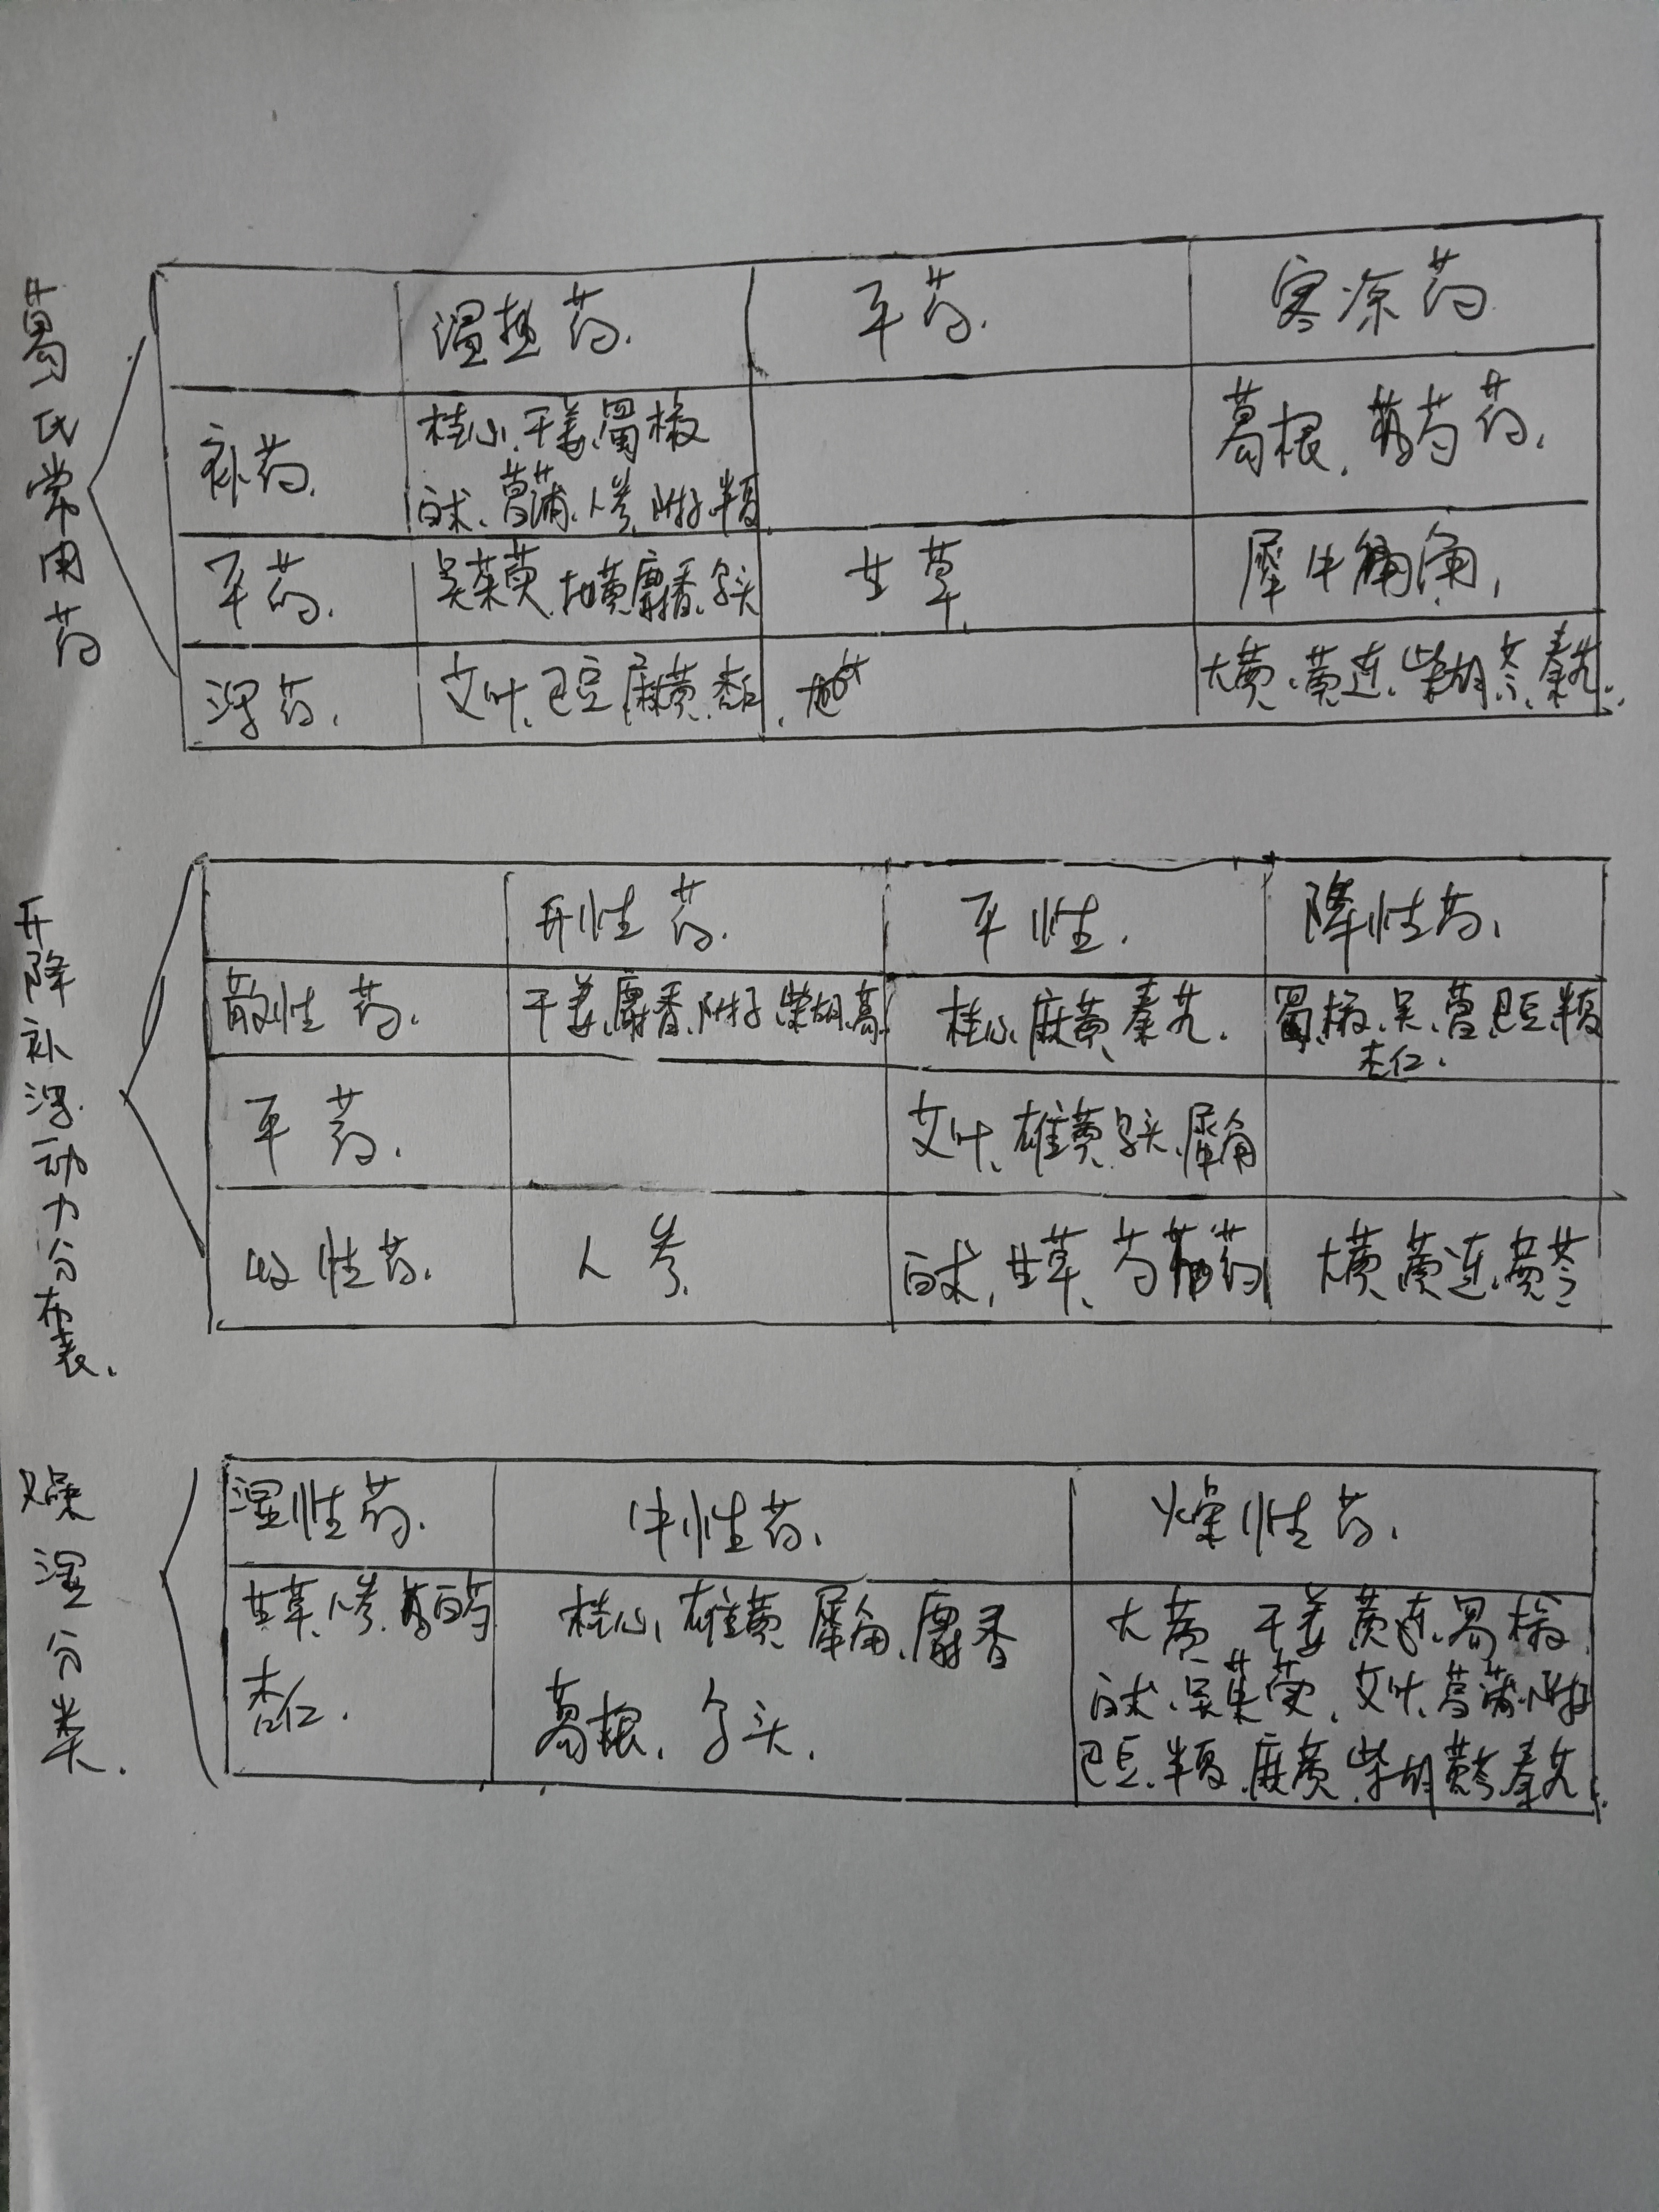 葛氏常用药
温热药.
平药.
寒凉药
补药.
桂心、干姜、蜀椒
白术、菖蒲、人参、附子、半夏
葛根、芍药、
平药.
吴茱萸、雄黄、麝香、乌头
甘草、
犀牛角、
泻药、
艾叶、巴豆、麻黄、杏仁、
大黄、黄连、柴胡、芩、秦艽、
升降补泻动力分布表、
升性药.
平性.
降性药、
散性药.
干姜、麝香、附子、柴胡、葛
桂心、麻黄、秦艽.
蜀椒、吴、菖、巴豆、半夏
杏仁.
平药.
艾叶、雄黄、乌头、犀角
收性药.
人参、
白术、甘草、芍药
大黄、黄连、黄芩
燥湿分类.
湿性药.
中性药、
燥性药、
甘草、人参、白芍
杏仁.
桂心、雄黄、犀角、麝香
葛根、乌头、
大黄、干姜、黄连、蜀椒、
白术、吴茱萸、艾叶、菖蒲、附子
巴豆、半夏、麻黄、柴胡、黄芩、秦艽、